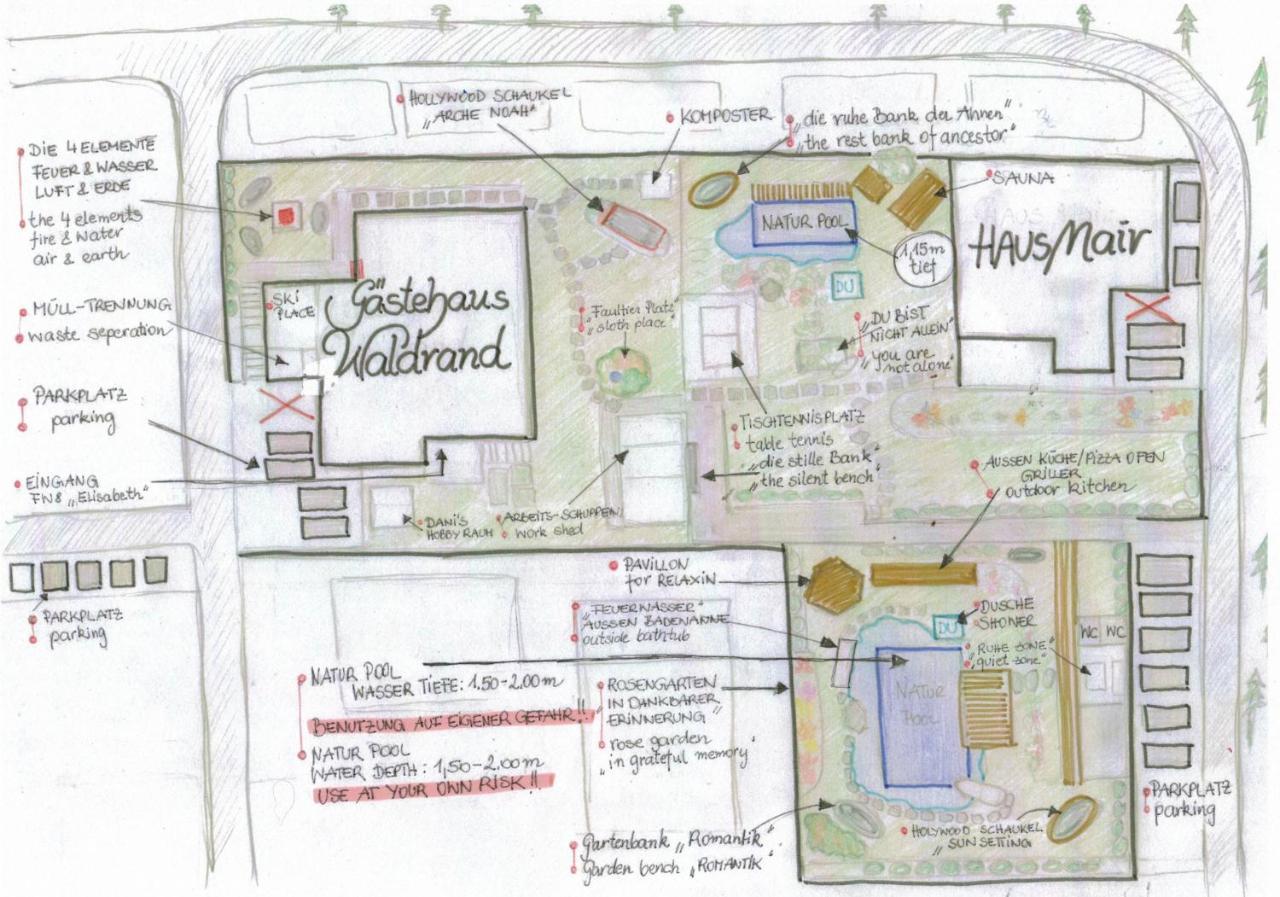 HOLLYWOOD SCHAUKEL
„ARCHE NOAH"
KOMPOSTER
„die ruhe Bank der Ahnen"
„the rest bank of ancestor"
DIE 4 ELEMENTE
FEUER & WASSER
LUFT & ERDE
the 4 elements
fire & water
air & earth
SAUNA
NATUR POOL
1,15m
tief
HAUS Mair
DU
SKI
PLACE
Gästehaus
Waldrand
MÜLL-TRENNUNG
waste seperation
„Faultier Platz"
„sloth place"
„DU BIST
NICHT ALLEIN"
„you are
not alone"
PARKPLATZ
parking
TISCHTENNISPLATZ
table tennis
„die stille Bank"
„the silent bench"
EINGANG
FN8 „Elisabeth"
AUSSEN KÜCHE/PIZZA OFEN
GRILLER
outdoor kitchen
DANI'S
HOBBY RAUM
ARBEITS-SCHUPPEN
work shed
PARKPLATZ
parking
PAVILLON
for RELAXIN
„FEUERWASSER"
AUSSEN BADEWANNE
outside bathtub
DU
DUSCHE
SHONER
WC WC
„RUHE ZONE"
„quiet zone"
NATUR POOL
WASSER TIEFE: 1.50-2.00m
BENUTZUNG AUF EIGENER GEFAHR!!
NATUR POOL
WATER DEPTH: 1,50-2.00m
USE AT YOUR OWN RISK!!
„ROSENGARTEN
IN DANKBARER
ERINNERUNG"
„rose garden
in grateful memory"
NATUR
POOL
PARKPLATZ
parking
HOLYWOOD SCHAUKEL
„SUN SETTING
Gartenbank „Romantik"
Garden bench „ROMANTIK"